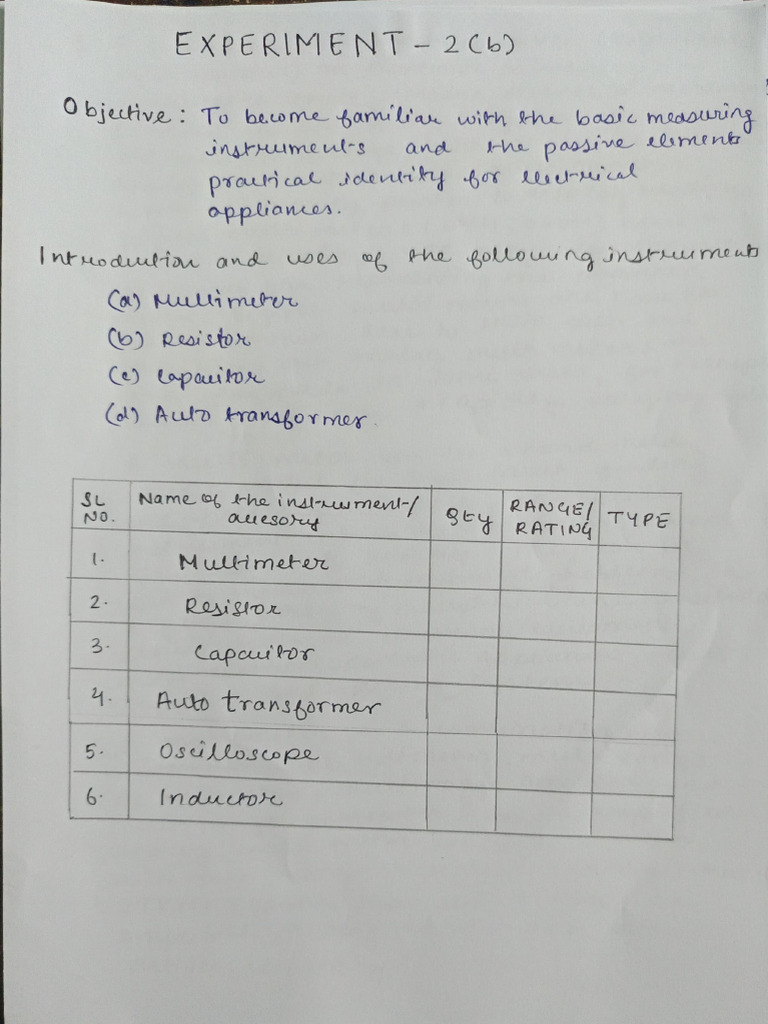 EXPERIMENT - 2(b)
Objective: To become familiar with the basic measuring
instruments and the passive elements
practical identity for electrical
appliances.
Introduction and uses of the following instruments
(a) Multimeter
(b) Resistor
(c) Capacitor
(d) Auto transformer.
SL NO. Name of the instrument/ accesory Qty RANGE/ RATING TYPE
1. Multimeter
2. Resistor
3. Capacitor
4. Auto transformer
5. Oscilloscope
6. Inductor